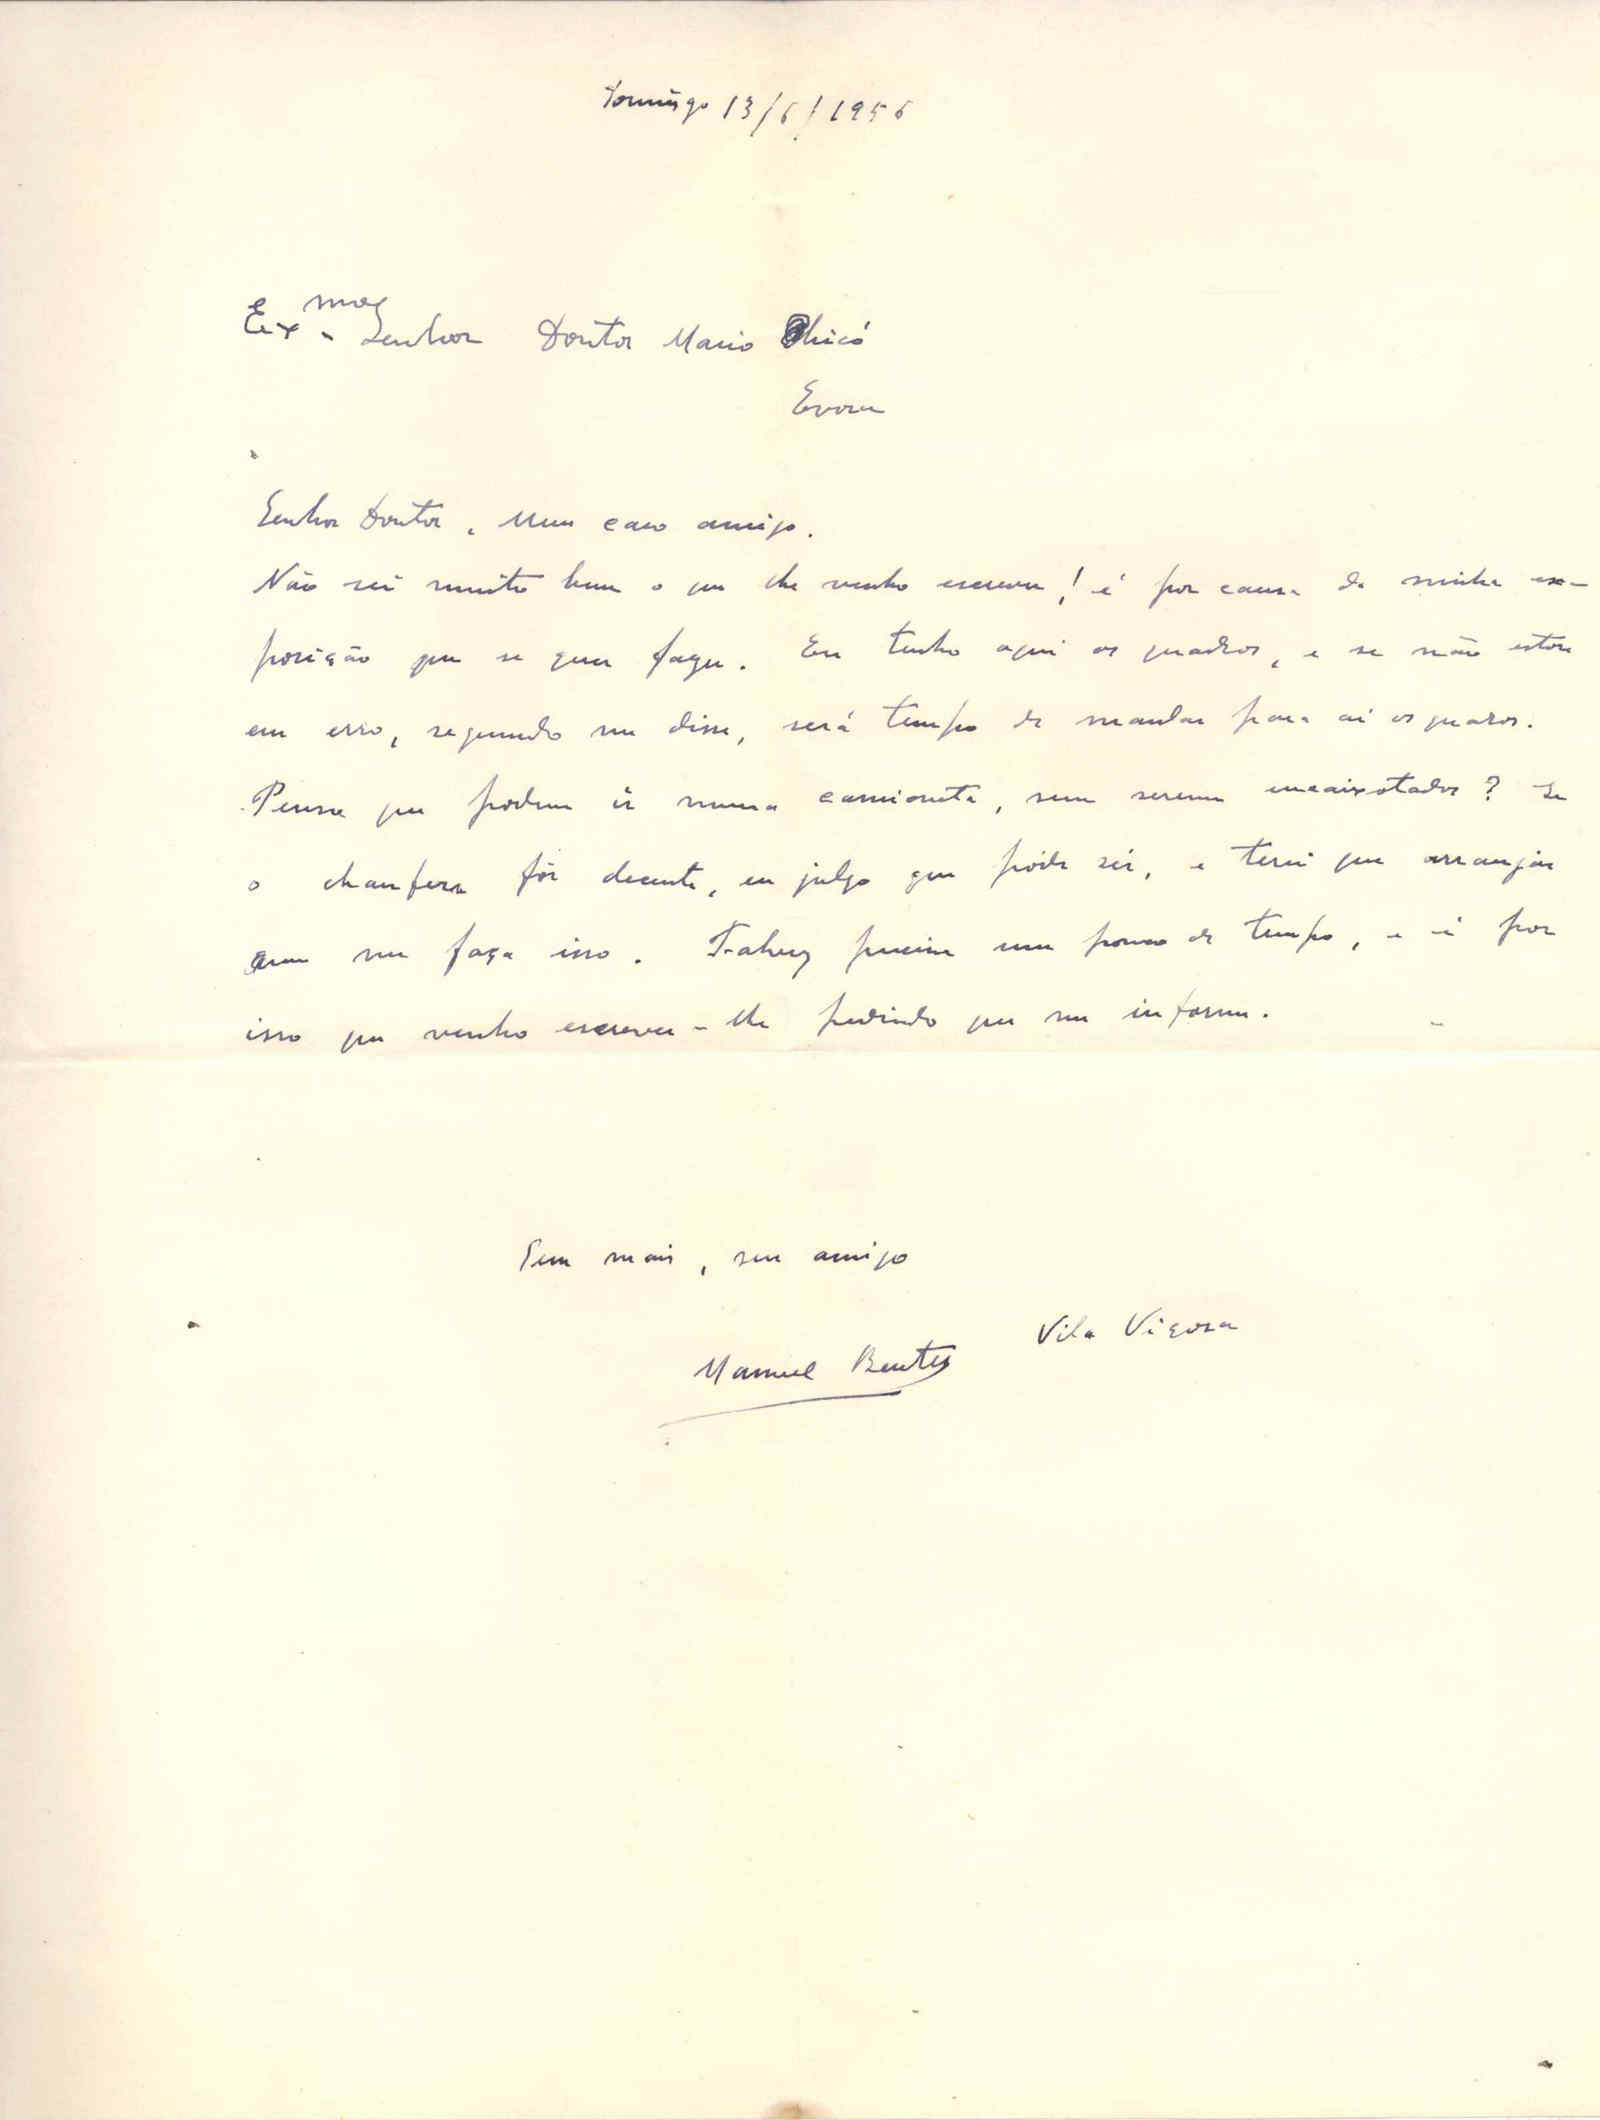 Domingo 13/6/1956
Exmo Senhor Doutor Mario Chicó
Evora
Senhor Doutor, Meu caro amigo.
Não sei muito bem o que lhe venho escrever! é por causa da minha ex-
posição que se quer fazer. Eu tenho aqui os quadros, e se não estou
em erro, segundo me disse, será tempo de mandar para aí os quadros.
Pensa que podem ir numa camioneta, sem serem encaixotados? Se
o chaufeur fôr decente, eu julgo que póde ser, e terei que arranjar
quem me faça isso. Talvez precise um pouco de tempo, e é por
isso que venho escrever-lhe pedindo que me informe.
Sem mais, seu amigo
Vila Viçosa
Manuel Bentes